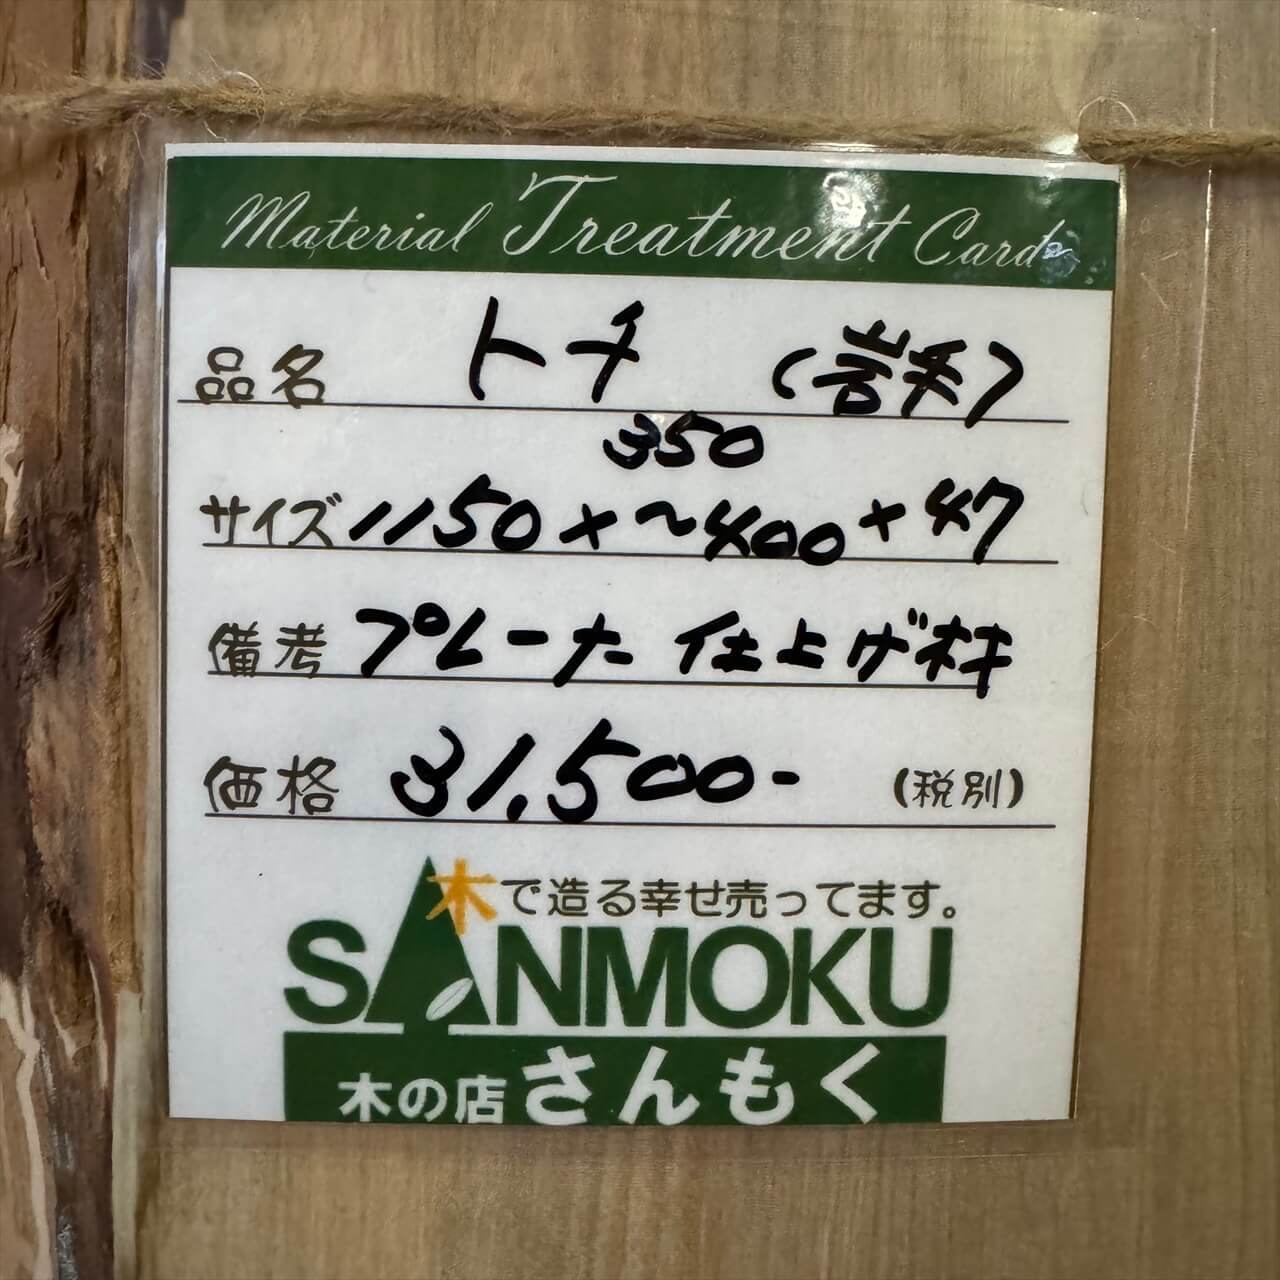 Material Treatment Card
品名 トチ (岩手)
350
サイズ 1150×~400×47
備考 プレーナー仕上げ材
価格 31,500- (税別)
木で造る幸せ売ってます。
SANMOKU
木の店さんもく